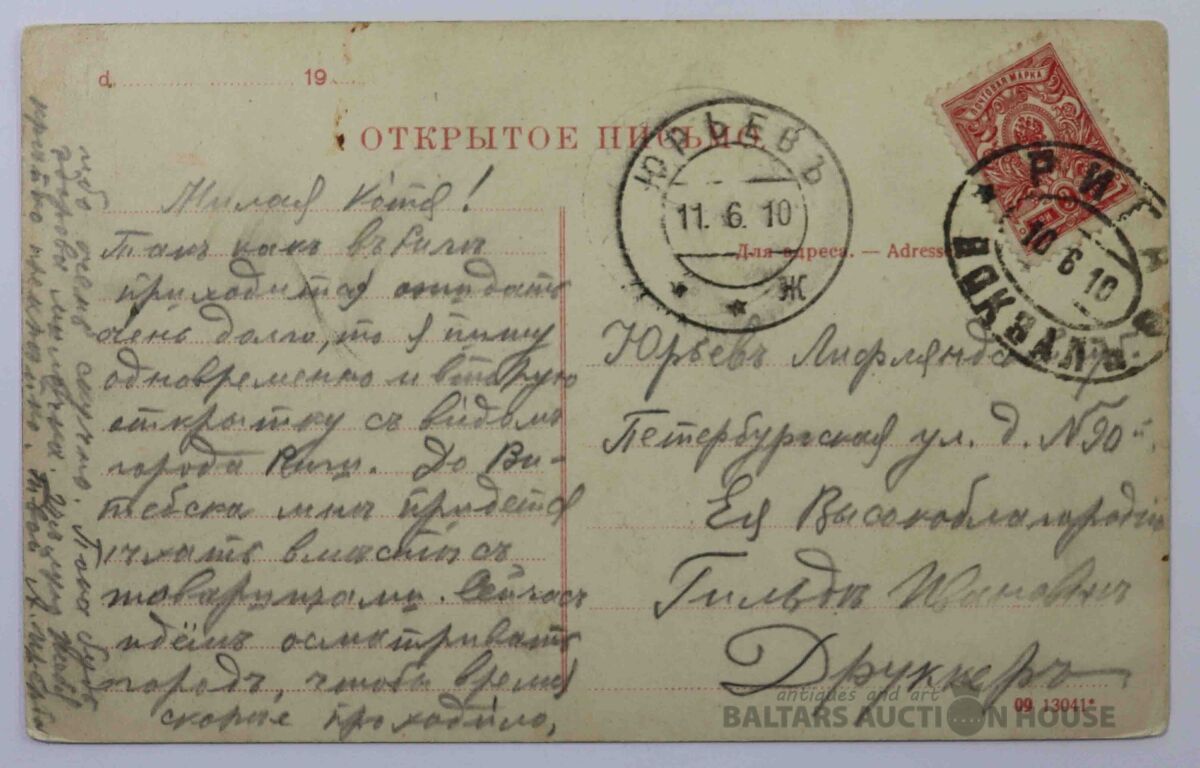 d. 19
ОТКРЫТОЕ ПИСЬМО
ПОЧТОВАЯ МАРКА
РИГА
ВОКЗАЛЪ
10 6 10
ЮРЬЕВЪ
11. 6. 10
Ж
Для адреса. — Adresse
Милая Котя!
Такъ какъ въ Ригѣ
приходится ожидать
очень долго, то я пишу
одновременно и вторую
открытку съ видомъ
города Риги. До Ви-
тебска мнѣ придется
ѣхать вмѣстѣ съ
товарищами. Сейчасъ
идёмъ осматривать
городъ, чтобы время
скорѣе проходило,
ибо очень скучно. Пока будь
здорова миленькая. Цѣлую
крѣпко
Юрьевъ Лифлянд
Петербургская ул. д. №90
Ея Высокоблагородію
Гильдѣ Ивановнѣ
Друккеръ
09 13041*
antiques and art
BALTARS AUCTION HOUSE